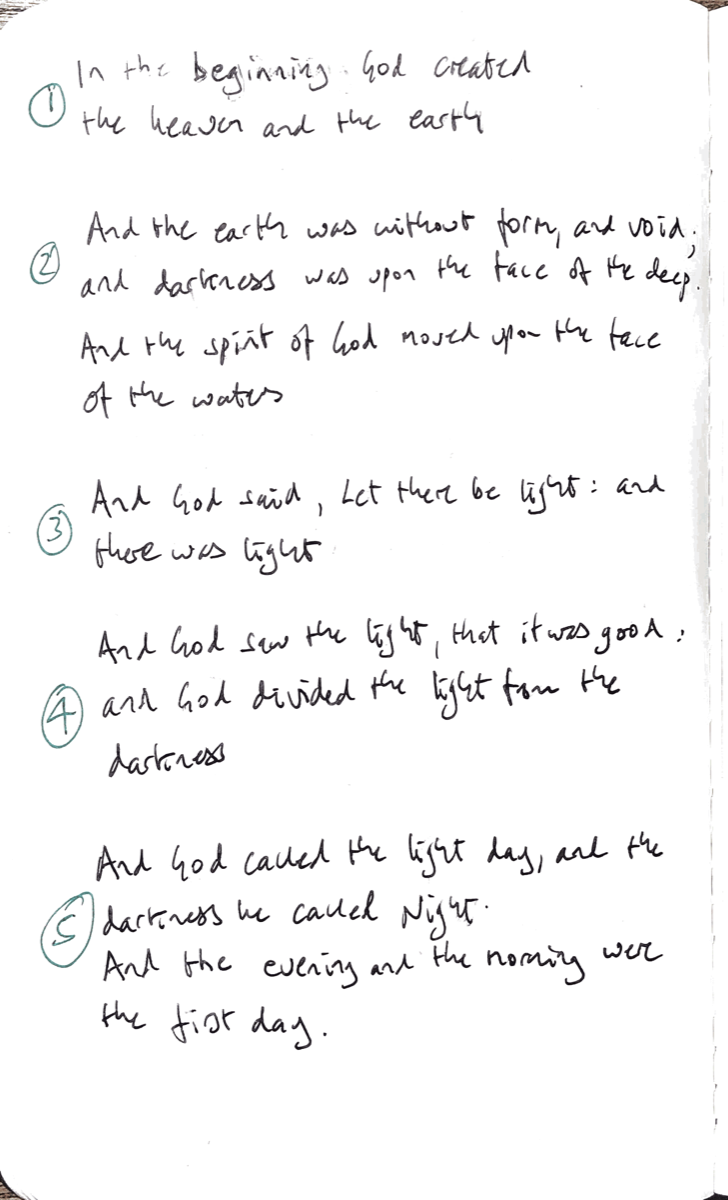 In the beginning God created
①
the heaven and the earth
And the earth was without form, and void;
②
and darkness was upon the face of the deep.
And the spirit of God moved upon the face
of the waters
And God said, Let there be light: and
③
there was light
And God saw the light, that it was good:
④ and God divided the light from the
darkness
And God called the light day, and the
⑤ darkness he called Night.
And the evening and the morning were
the first day.